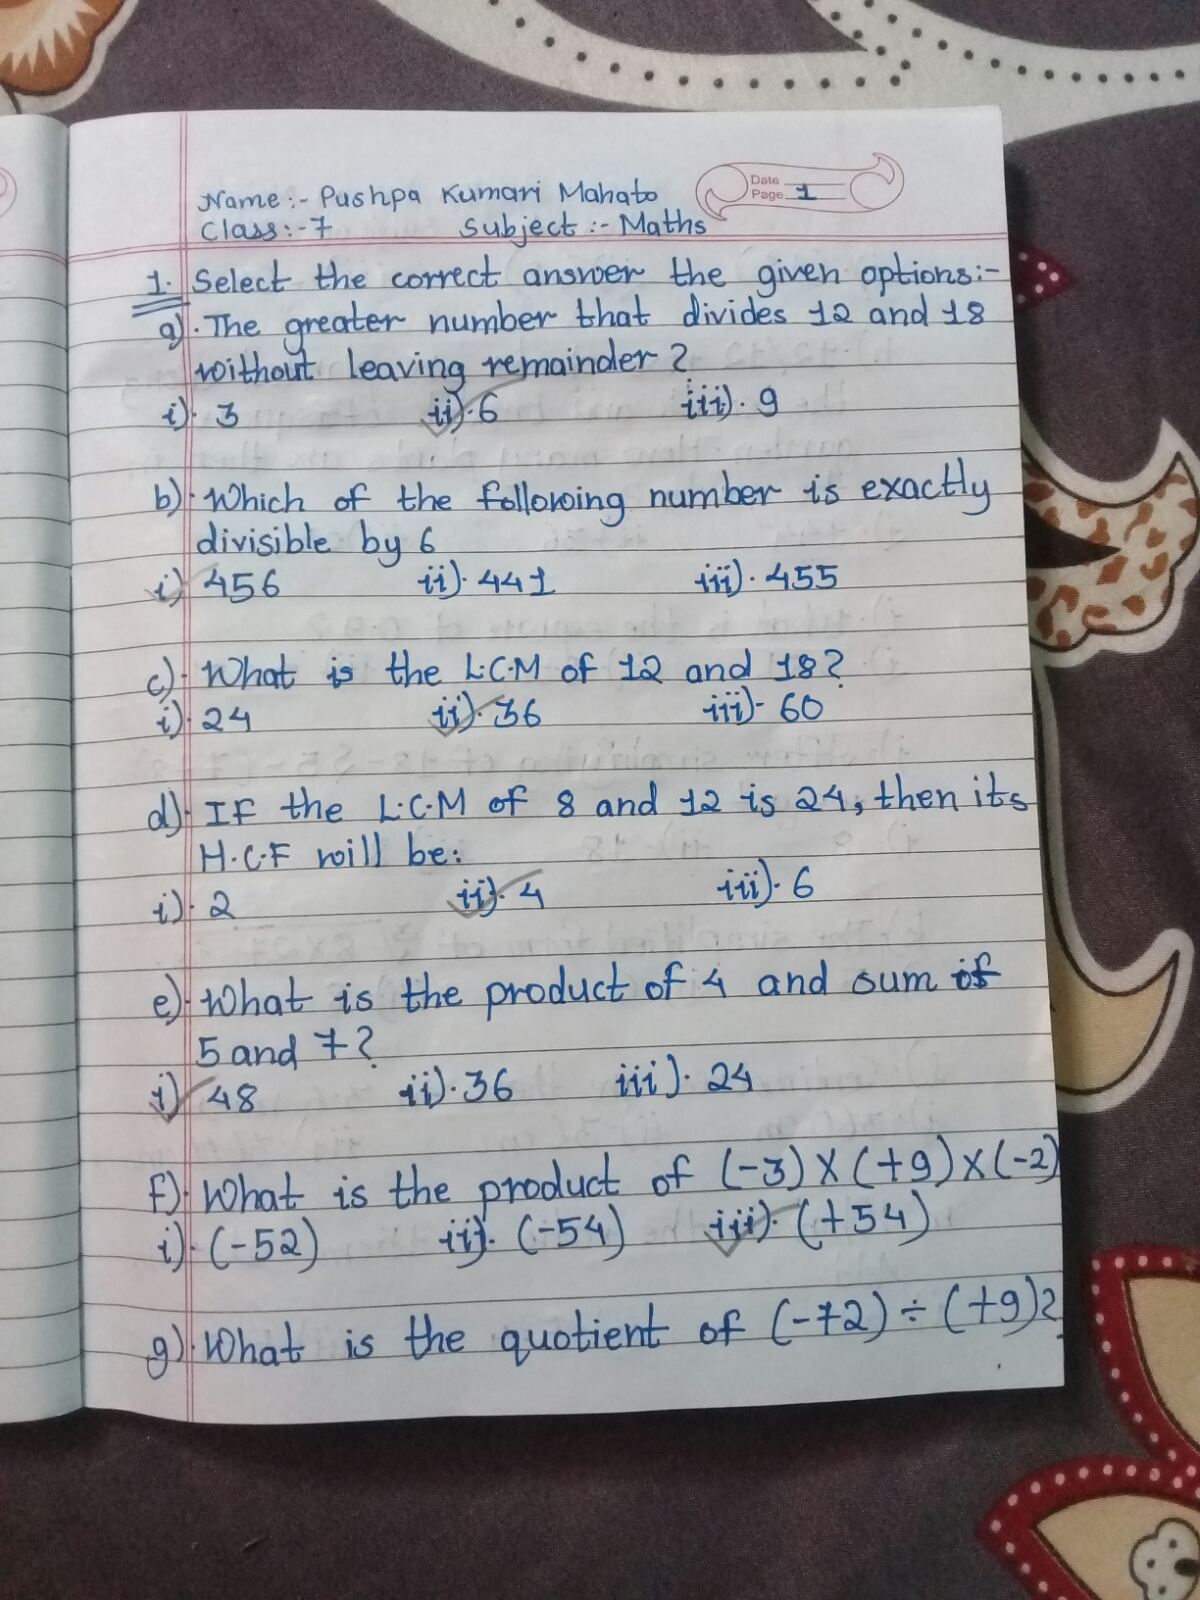 Date
Page 1
Name:- Pushpa Kumari Mahato
Class:-7 Subject:- Maths
1. Select the correct answer the given options:-
a). The greater number that divides 12 and 18
without leaving remainder?
i). 3 ii). 6 iii). 9
b). Which of the following number is exactly
divisible by 6
i) 456 ii). 441 iii). 455
c). What is the L.C.M of 12 and 18?
i). 24 ii). 36 iii)- 60
d). If the L.C.M of 8 and 12 is 24, then its
H.C.F will be:
i). 2 ii). 4 iii). 6
e). What is the product of 4 and sum of
5 and 7?
i) 48 ii). 36 iii). 24
f). What is the product of (-3)×(+9)×(-2)
i). (-52) ii). (-54) iii). (+54)
g). What is the quotient of (-72)÷(+9)?